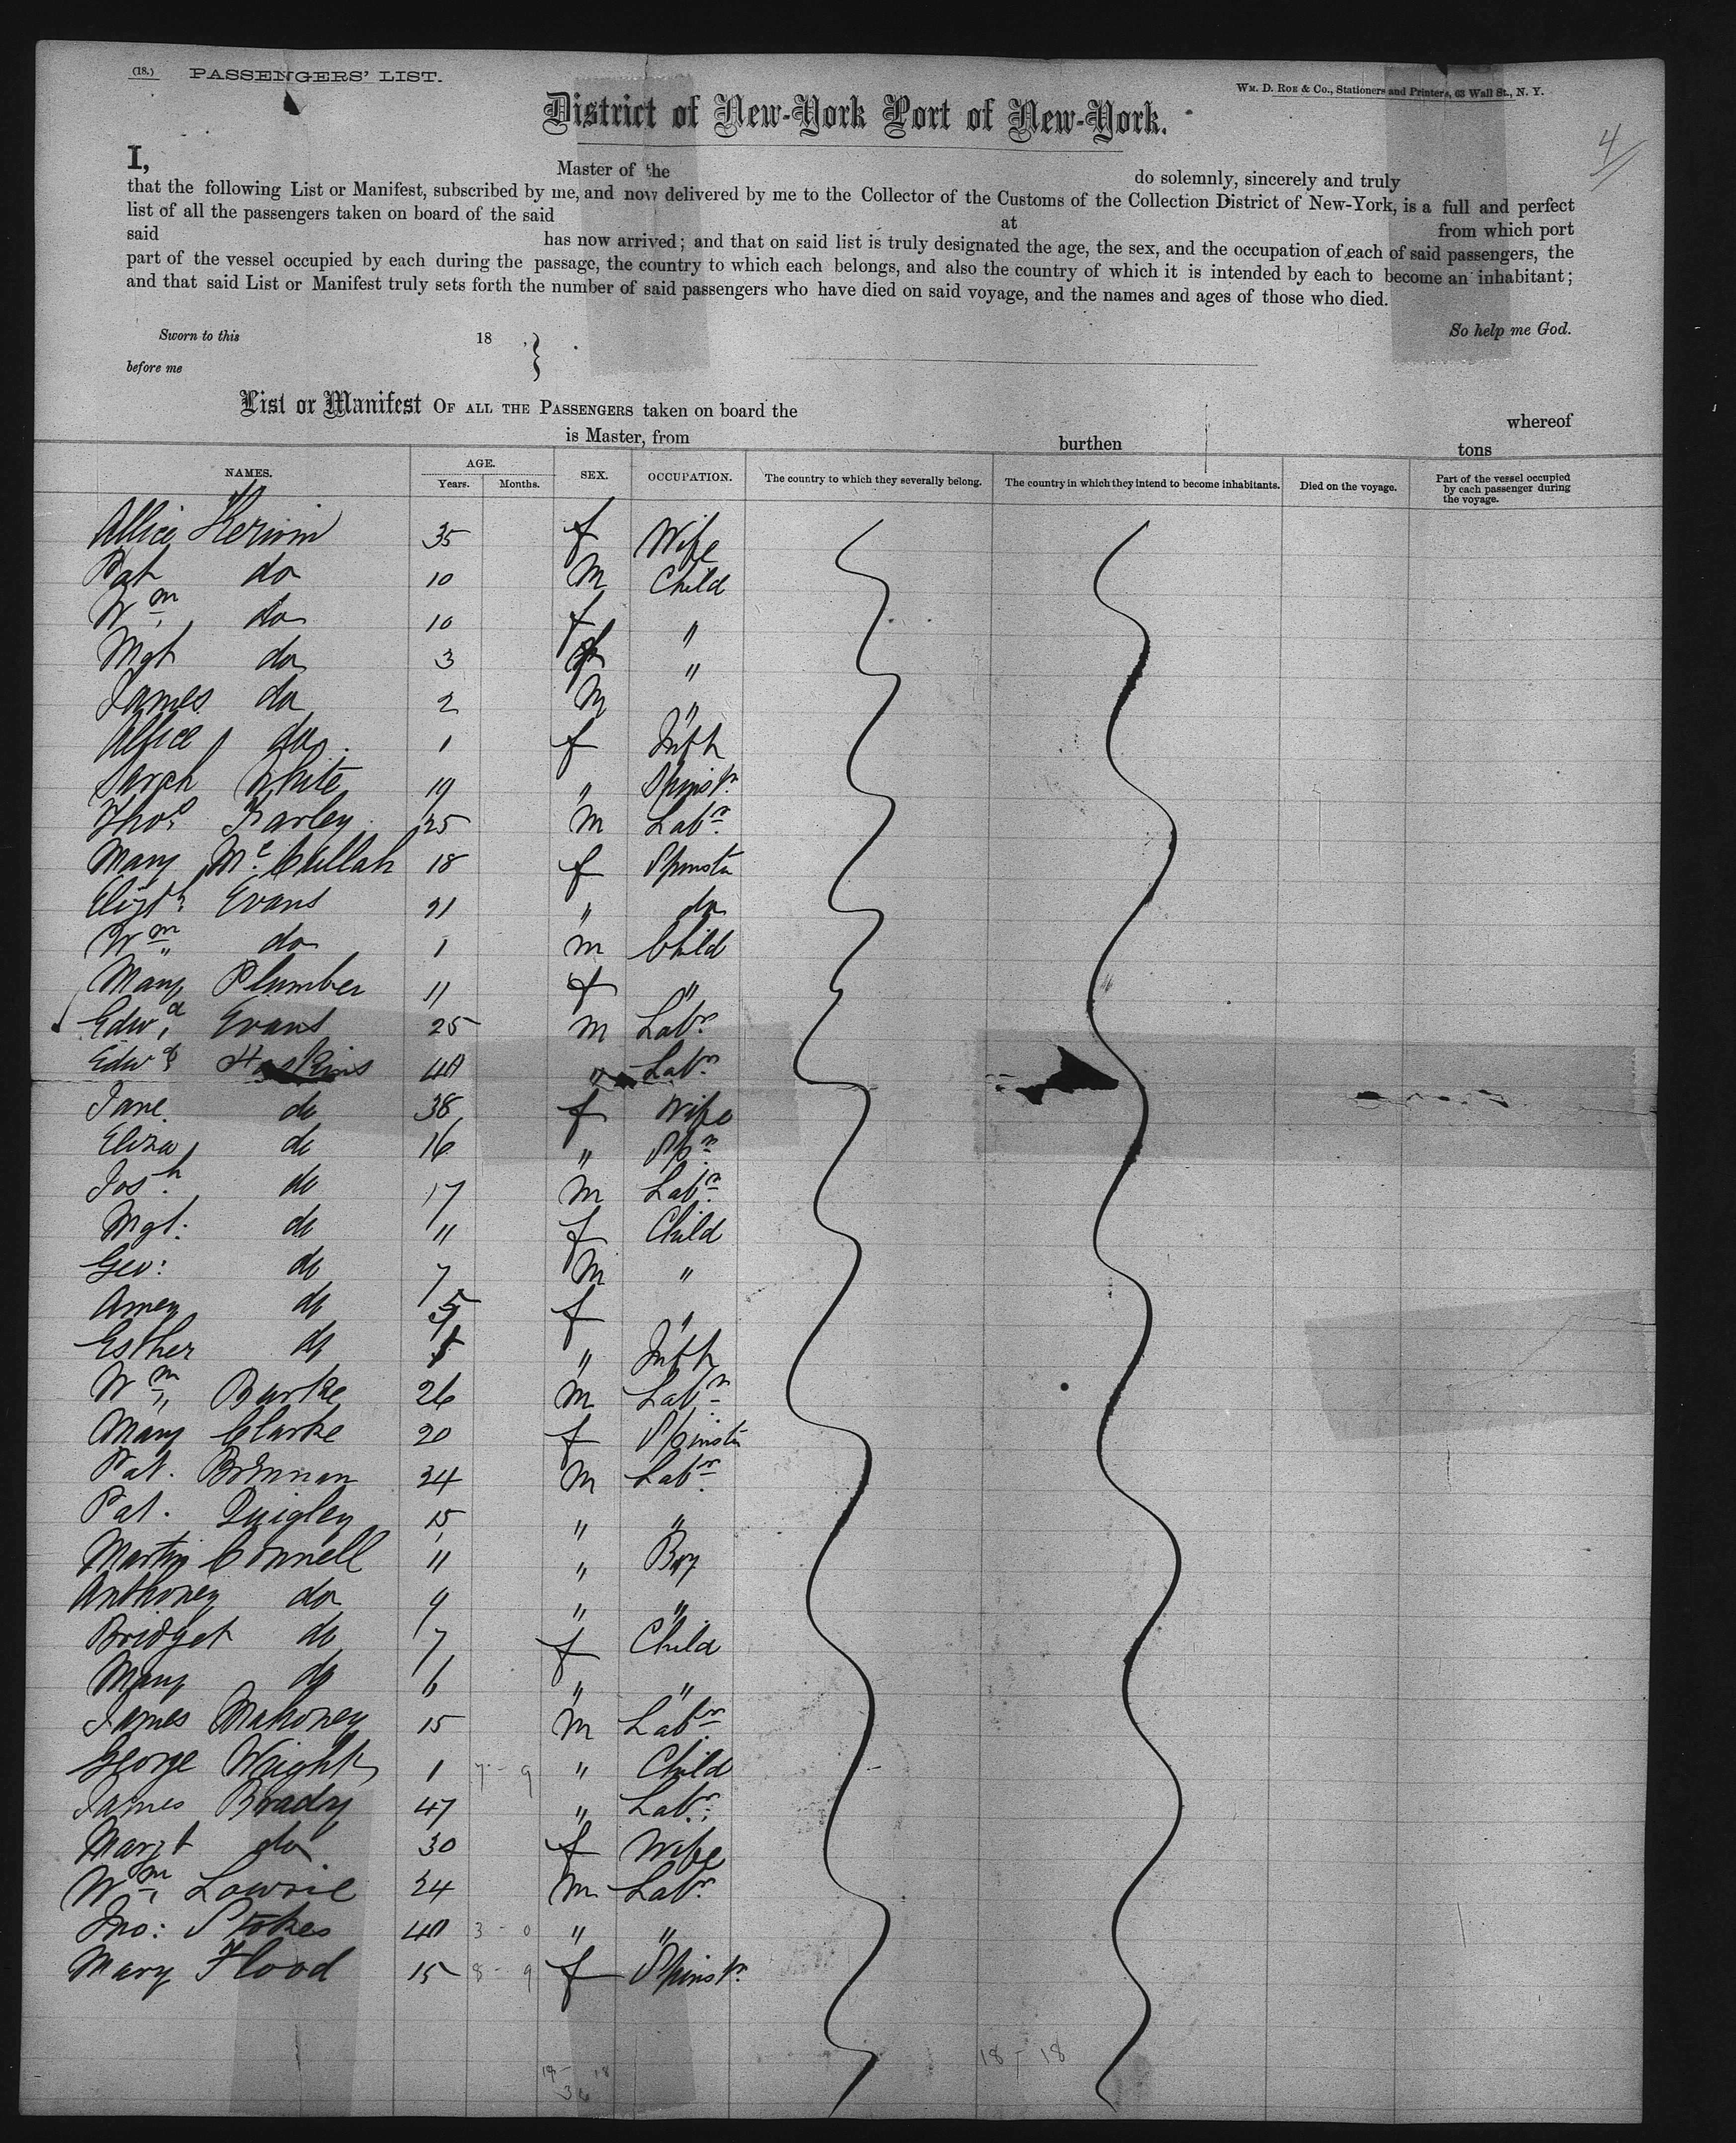 (18.) PASSENGERS' LIST.
WM. D. ROE & CO., Stationers and Printers, 63 Wall St., N. Y.
District of New-York Port of New-York.
4
I, Master of the do solemnly, sincerely and truly
that the following List or Manifest, subscribed by me, and now delivered by me to the Collector of the Customs of the Collection District of New-York, is a full and perfect
list of all the passengers taken on board of the said at from which port
said has now arrived; and that on said list is truly designated the age, the sex, and the occupation of each of said passengers, the
part of the vessel occupied by each during the passage, the country to which each belongs, and also the country of which it is intended by each to become an inhabitant;
and that said List or Manifest truly sets forth the number of said passengers who have died on said voyage, and the names and ages of those who died.
So help me God.
Sworn to this 18 , }
before me
List or Manifest OF ALL THE PASSENGERS taken on board the whereof
is Master, from burthen tons
NAMES. AGE. Years. Months. SEX. OCCUPATION. The country to which they severally belong. The country in which they intend to become inhabitants. Died on the voyage. Part of the vessel occupied by each passenger during the voyage.
Allice Kerwin 35 f Wife
Pat do 10 M Child
Wm do 10 f "
Mgt do 3 f "
James do 2 M "
Alice do 1 f Infth
Sarah White 19 " Spinstr
Thos Farley 25 M Labr
Mary McCullah 18 f Spinstr
Elizth Evans 21 " do
Wm do 1 m Child
Mary Plumber 11 f "
Edwd Evans 25 m Labr
Edwd 40 " Labr
Jane do 38 f Wife
Eliza do 16 " Spr
Josh do 17 M Labr
Mgt: do 11 f Child
Geo: do 7 M "
Amey do 5 f "
Esther do " Infth
Wm Burke 26 M Labr
Mary Clarke 20 f Spinstr
Pat. Brennan 24 M Labr
Pat. Quigley 15 " "
Martin Connell 11 " Boy
Anthoney do 9 " "
Bridget do 7 f Child
Mary do 6 " "
James Mahoney 15 M Labr
George Wright 1 7 - 9 " Child
James Brady 47 " Labr
Margt do 30 f Wife
Wm Lowrie 24 m Labr
Jno: Stokes 40 3 - 0 " "
Mary Flood 15 8 - 9 f Spinstr
18 - 18
18
36